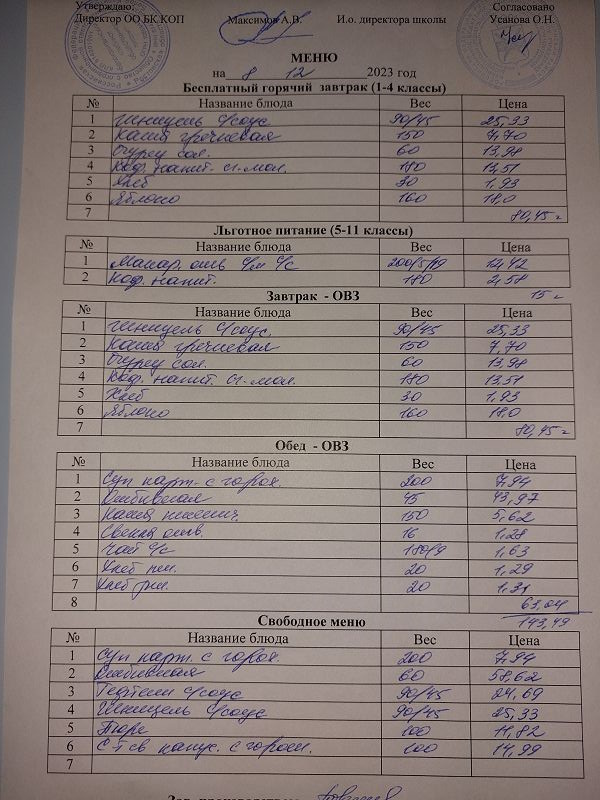 Утверждаю: Согласовано
Директор ОО БК.КОП Максимов А.В. И.о. директора школы Усанова О.Н.
МЕНЮ
на 8 12 2023 год
Бесплатный горячий завтрак (1-4 классы)
№ Название блюда Вес Цена
1 Шницель с/соус 90/45 25,33
2 Каша гречневая 150 7,70
3 Огурец сол. 60 13,98
4 Коф. напит. сг-мол. 180 13,51
5 Хлеб 30 1,93
6 Яблоко 160 18,0
7 80,45
Льготное питание (5-11 классы)
№ Название блюда Вес Цена
1 Макар. отв с/м с/с 200/5/19 12,42
2 Коф. напит. 180 2,58
15
Завтрак - ОВЗ
№ Название блюда Вес Цена
1 Шницель с/соус 90/45 25,33
2 Каша гречневая 150 7,70
3 Огурец сол. 60 13,98
4 Коф. напит. сг-мол. 180 13,51
5 Хлеб 30 1,93
6 Яблоко 160 18,0
7 80,45
Обед - ОВЗ
№ Название блюда Вес Цена
1 Суп карт. с горох. 200 7,94
2 Отбивная 45 43,97
3 Каша пшенич. 150 5,62
4 Свекла отв. 16 1,28
5 Чай с/с 180/9 1,63
6 Хлеб пш. 20 1,29
7 Хлеб рж. 20 1,31
8 63,04
143,49
Свободное меню
№ Название блюда Вес Цена
1 Суп карт. с горох. 200 7,94
2 Отбивная 60 58,62
3 Тефтели с/соус 90/45 24,69
4 Шницель с/соус 90/45 25,33
5 Пюре 100 11,82
6 С-т св капус. с горош. 100 14,99
7
Зав. производством